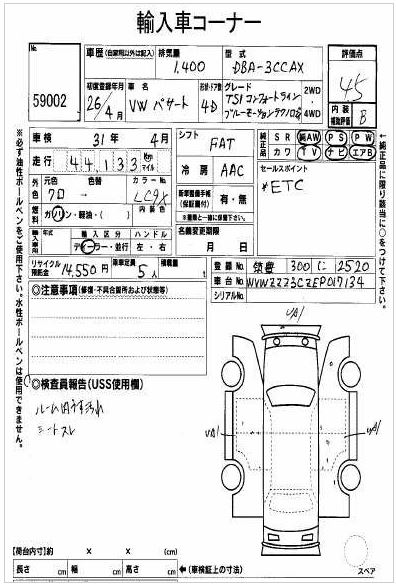 輸入車コーナー
No.
59002
車歴 (自家用以外は記入)
排気量
1,400
型式
DBA-3CCAX
評価点
4.5
内装補助評価
B
初度登録年月
26/4月
車名
VW パサート
ドア
4D
グレード
TSI コンフォートライン
ブルーモーションテクノロジー
2WD
4WD
車検
31年 4月
シフト
FAT
純正品
SR 純AW PS PW
カワ TV ナビ エアB
走行
44,133 Km マイル
冷房
AAC
セールスポイント
*ETC
外色
元色
クロ
色替
→
カラーNo.
LC9X
内装色
燃料
ガソリン・軽油・( )
新車整備手帳
(保証書付)
有・無
※車輌と一緒に保管下さい。
輸入車
年式
輸入区分
ディーラー・並行
ハンドル
左・右
名義変更期限
月 日
リサイクル預託金
14,550円
乗車定員
5人
積載量
t
登録No.
筑豊 300 に 2520
車台No.
WVWZZZ3CZEP017134
シリアルNo.
◎注意事項 (修復・不具合箇所および状態等)
◎検査員報告(USS使用欄)
ルーム内うす汚れ
シートスレ
UA1
UA1
UA1
スペア
【荷台内寸】約 × × (cm)
長さ cm 幅 cm 高さ cm ←(車検証上の寸法)
※必ず油性ボールペンをご使用下さい。水性ボールペンは使用できません。
←純正品に限り該当に○をつけて下さい。